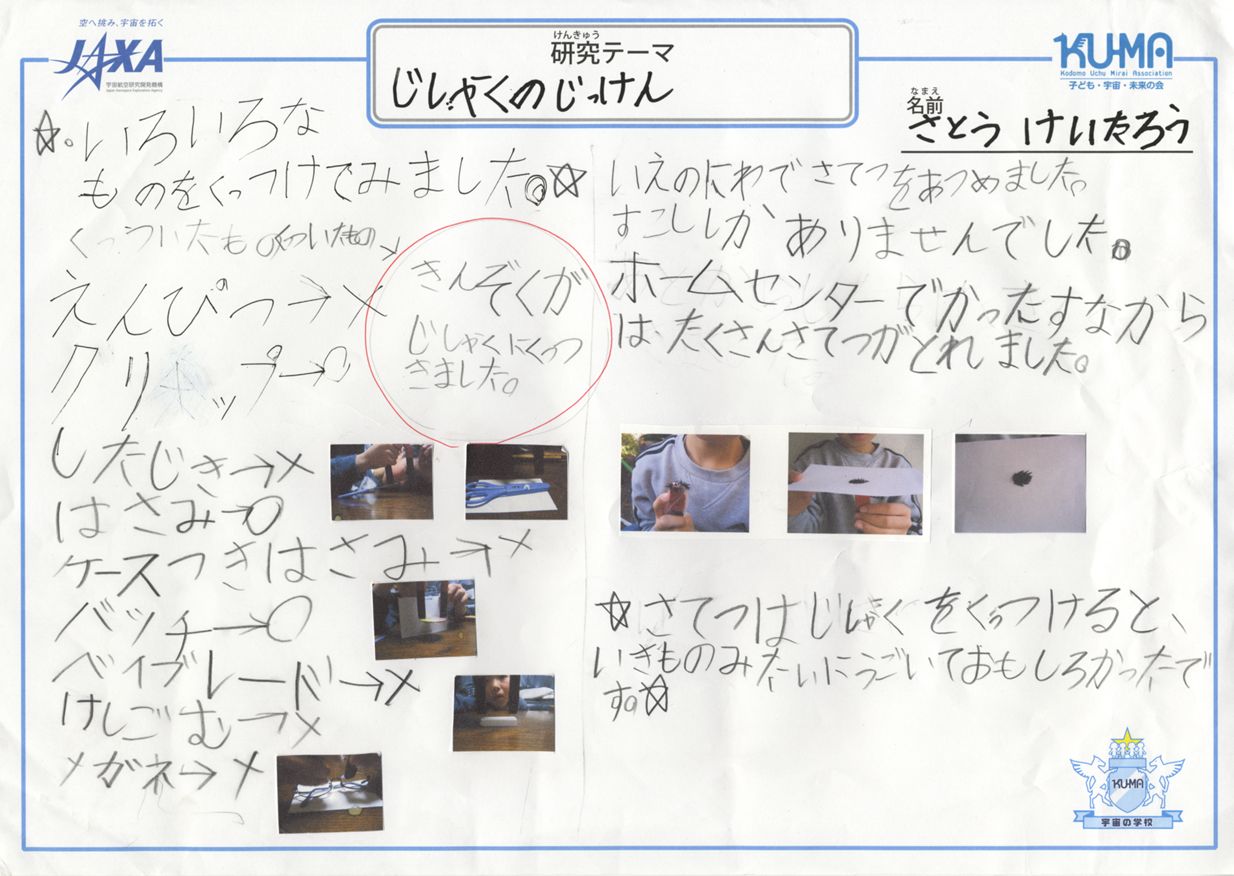 空へ挑み、宇宙を拓く
JAXA
宇宙航空研究開発機構
Japan Aerospace Exploration Agency
けんきゅう
研究テーマ
じしゃくのじっけん
KU-MA
Kodomo Uchu Mirai Association
子ども・宇宙・未来の会
なまえ
名前
さとう けいたろう
☆。いろいろな
ものをくっつけてみました。☆
くっついたもの くっついたもの
えんぴつ→×
クリップ→○
したじき→×
はさみ→○
ケースつきはさみ→×
バッチ→○
ベイブレード→×
けしごむ→×
メガネ→×
きんぞくが
じしゃくにくっつ
きました。
いえのにわでさてつをあつめました。
すこししかありませんでした。
ホームセンターでかったすなから
は、たくさんさてつがとれました。
☆さてつはじしゃくをくっつけると、
いきものみたいにうごいておもしろかったで
す。☆
KUMA
宇宙の学校